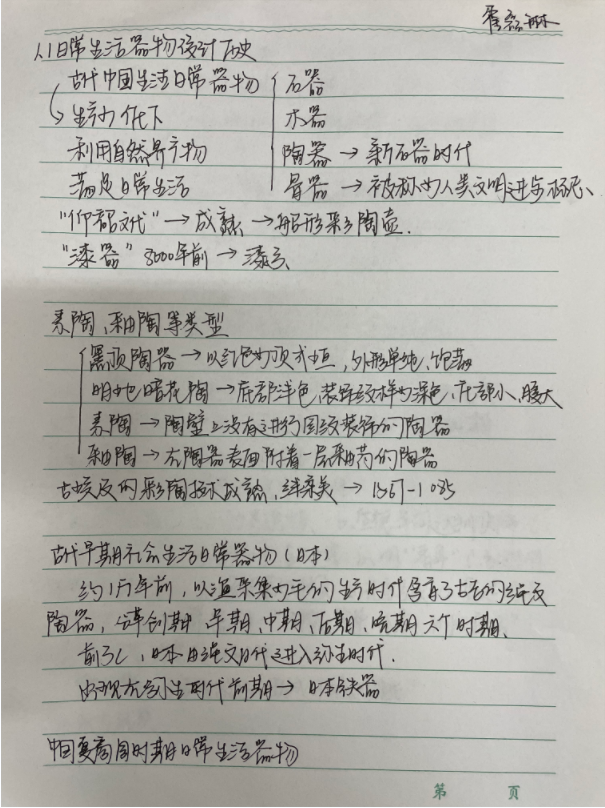 从日常生活器物设计历史
古代中国生活日常器物 石器
生产力低下 木器
利用自然界产物 陶器→新石器时代
满足日常生活 骨器→被称为人类文明进步标志、
"仰韶文化"→成熟→船形彩陶壶.
"漆器" 8000年前→漆弓
素陶、釉陶等类型
黑顶陶器→以红色为顶或,外形单纯、饱满
明地暗花陶→底部浅色,装饰纹样为深色,底部小、腹大
素陶→陶壁上没有进行图纹装饰的陶器
釉陶→在陶器表面附着一层釉药的陶器
古埃及的彩陶技术成熟,→1567-1085
古代早期社会生活日常器物(日本)
约1万年前,以渔采集为主的生产时代孕育了古老的绳纹
陶器,草创期、早期、中期、后期、晚期六个时期.
前3C,日本由绳文时代进入弥生时代.
出现在弥生时代前期→日本铁器
中国夏商周时期日常生活器物
第 页